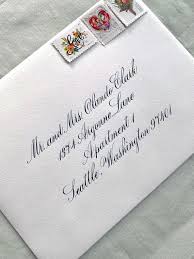 Mr. and Mrs. Olando Clark
1874 Argonne Lane
Apartment 1
Seattle, Washington 97401